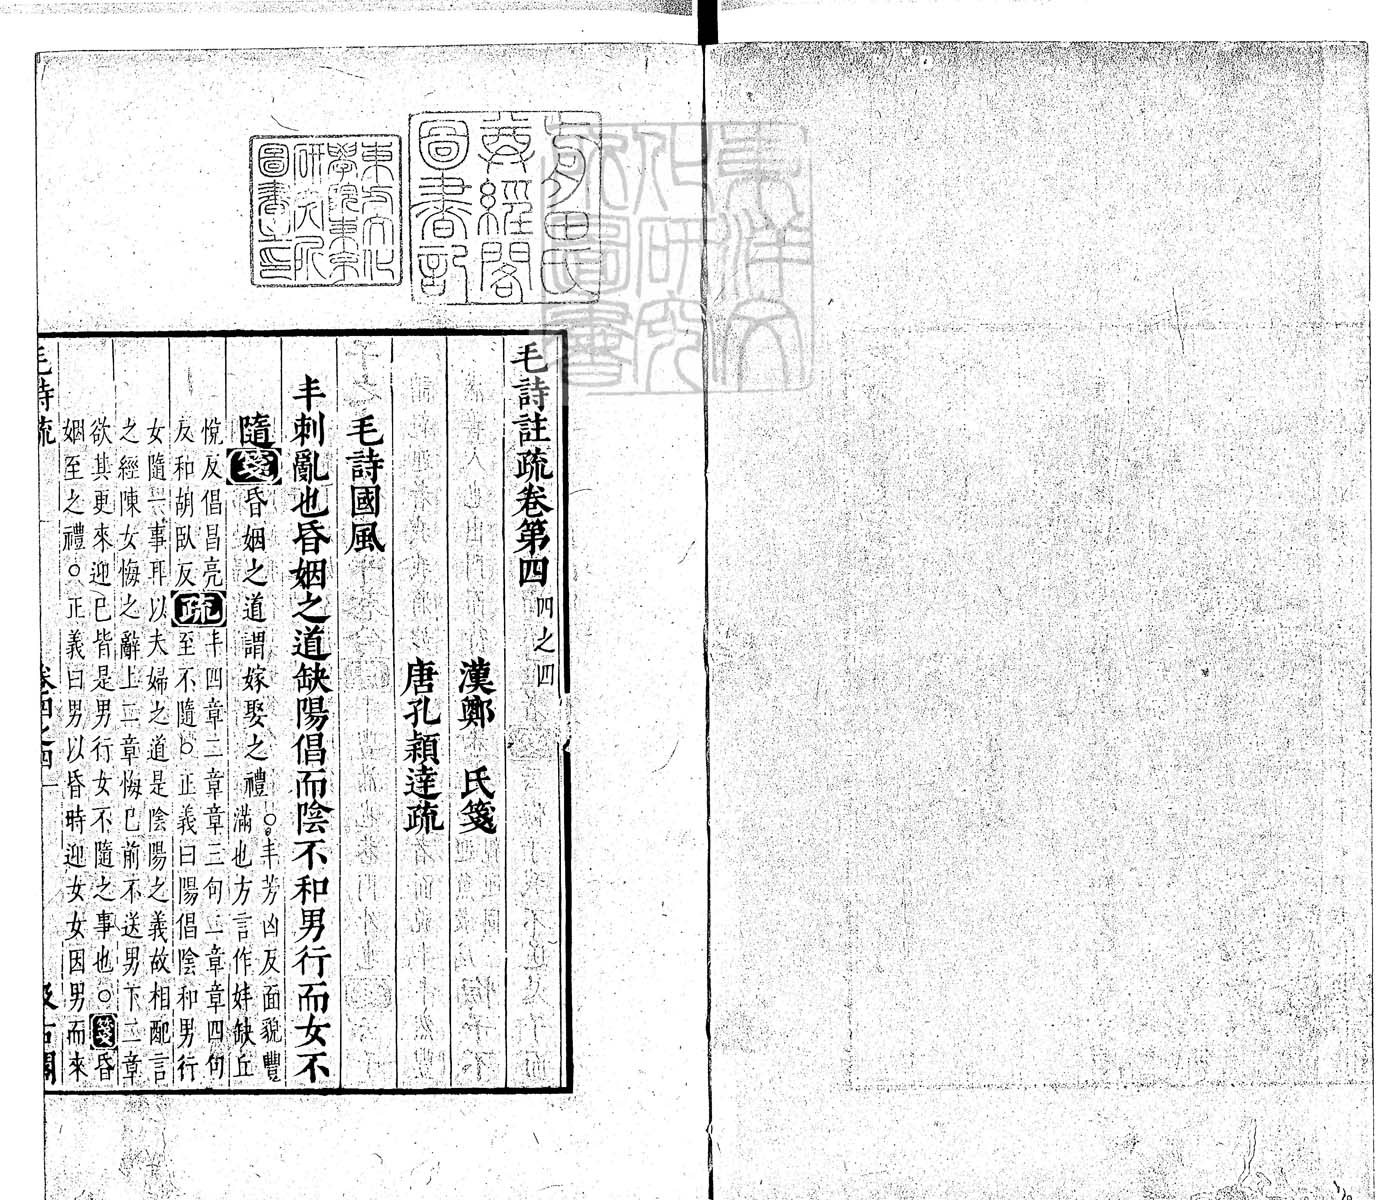 毛詩註疏卷第四 四之四
漢鄭 氏箋
唐孔穎達疏
毛詩國風
丰刺亂也昏姻之道缺陽倡而陰不和男行而女不
隨箋昏姻之道謂嫁娶之禮○丰芳凶反面貌豐
滿也方言作妦缺丘
悅反倡昌亮
反和胡臥反疏丰四章二章章三句二章章四句
至不隨○正義曰陽倡陰和男行
女隨一事耳以夫婦之道是陰陽之義故相配言
之經陳女悔之辭上二章悔巳前不送男下二章
欲其更來迎巳皆是男行女不隨之事也○箋昏
姻至之禮○正義曰男以昏時迎女女因男而來
毛詩疏 卷四之四 一 汲古閣
東方文化
學院東京
研究所
圖書之印
尊經閣
圖書記
東洋文
化研究
所圖書